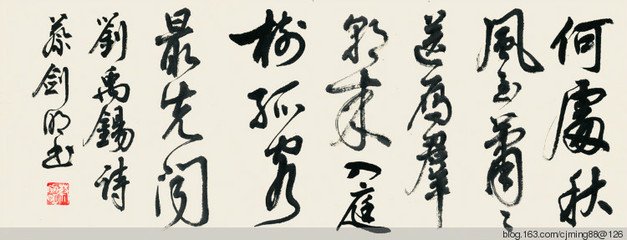 何處秋
風至蕭々
送雁群
朝來入庭
樹孤客
最先聞
劉禹錫詩
蔡劍明書
blog.163.com/cjming88@126